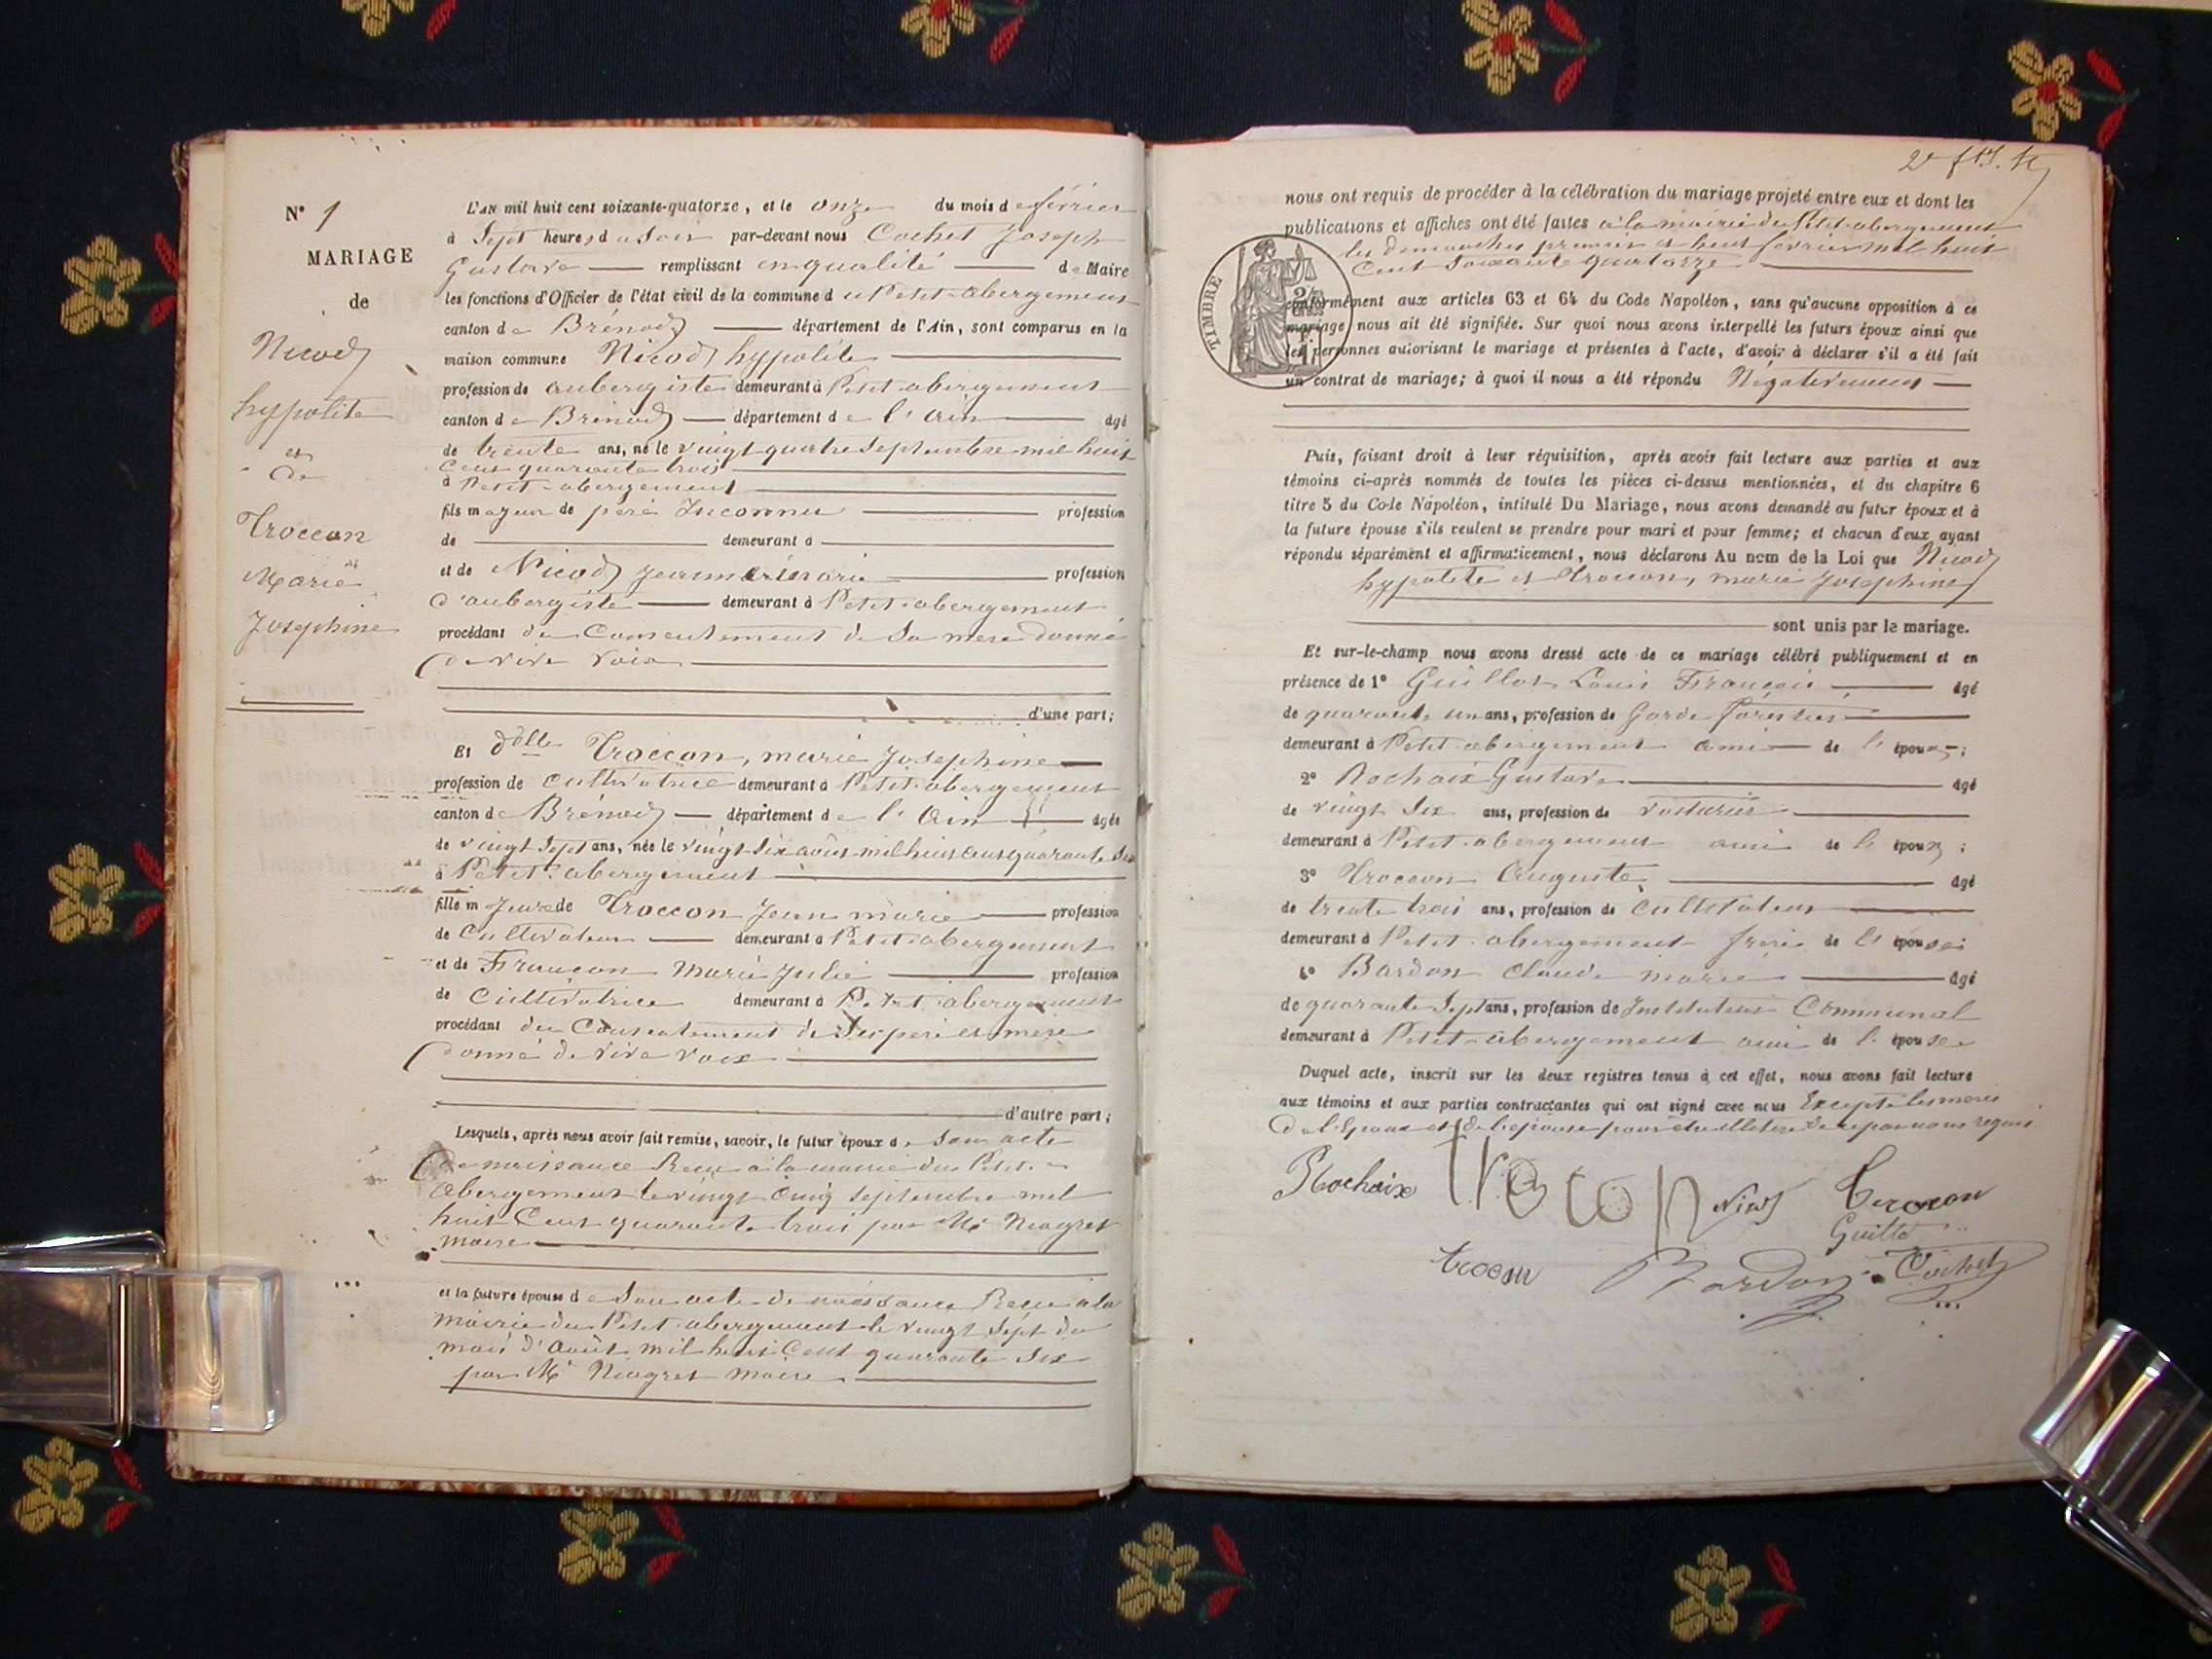 N° 1
MARIAGE
de
Nicod
hypolite
et
de
Troccon
Marie
Josephine
L'AN mil huit cent soixante-quatorze, et le onze du mois de février
à Sept heures du Soir par-devant nous Cochet Joseph
Gustave remplissant en qualité de Maire
les fonctions d'Officier de l'état civil de la commune du Petit-abergement
canton de Brénod département de l'Ain, sont comparus en la
maison commune Nicod hypolite
profession de aubergiste demeurant à Petit-abergement
canton de Brénod département de l'Ain âgé
de trente ans, né le vingt quatre Septembre mil huit
cent quarante trois
à Petit-abergement
fils majeur de père Inconnu profession
de demeurant à
et de Nicod Jeanne marie profession
d'aubergiste demeurant à Petit-abergement
procédant du Consentement de Sa mere donné
de vive voix
d'une part;
Et dlle Troccon, marie Josephine
profession de cultivatrice demeurant à Petit-abergement
canton de Brénod département de l'Ain âgée
de vingt Sept ans, née le vingt Six août mil huit cent quarante Six
à Petit-abergement
fille majeure de Troccon Jean marie profession
de Cultivateur demeurant à Petit-abergement
et de Françon Marie Julie profession
de Cultivatrice demeurant à Petit-abergement
procédant du Consentement de Ses père et mère
donné de vive voix
d'autre part;
Lesquels, après nous avoir fait remise, savoir, le futur époux de Son acte
de naissance Reçu à la mairie du Petit-
abergement le vingt Cinq Septembre mil
huit Cent quarante trois par Mr Niogret
maire
et la future épouse de Son acte de naissance Reçu à la
mairie du Petit-abergement le vingt Sept du
mois d'Août mil huit Cent quarante Six
par Mr Niogret maire
nous ont requis de procéder à la célébration du mariage projeté entre eux et dont les
publications et affiches ont été faites à la mairie du Petit-abergement
les dimanches premier et huit février mil huit
Cent Soixante quatorze
TIMBRE
conformément aux articles 63 et 64 du Code Napoléon, sans qu'aucune opposition à ce
mariage nous ait été signifiée. Sur quoi nous avons interpellé les futurs époux ainsi que
les personnes autorisant le mariage et présentes à l'acte, d'avoir à déclarer s'il a été fait
un contrat de mariage; à quoi il nous a été répondu Négativement
Puis, faisant droit à leur réquisition, après avoir fait lecture aux parties et aux
témoins ci-après nommés de toutes les pièces ci-dessus mentionnées, et du chapitre 6
titre 5 du Code Napoléon, intitulé Du Mariage, nous avons demandé au futur époux et à
la future épouse s'ils veulent se prendre pour mari et pour femme; et chacun d'eux ayant
répondu séparément et affirmativement, nous déclarons Au nom de la Loi que Nicod
hypolite et Troccon, marie Josephine
sont unis par le mariage.
Et sur-le-champ nous avons dressé acte de ce mariage célébré publiquement et en
présence de 1° Guillot Louis François âgé
de quarante un ans, profession de Garde forestier
demeurant à Petit-abergement ami de l'époux;
2° Rochaix Gustave âgé
de vingt Six ans, profession de voiturier
demeurant à Petit-abergement ami de l'époux;
3° Troccon Auguste âgé
de trente trois ans, profession de cultivateur
demeurant à Petit-abergement frère de l'épouse;
4° Bardon Claude marie âgé
de quarante Sept ans, profession de Instituteur Communal
demeurant à Petit-abergement ami de l'épouse
Duquel acte, inscrit sur les deux registres tenus à cet effet, nous avons fait lecture
aux témoins et aux parties contractantes qui ont signé avec nous Excepté les meres
de l'Epoux et de l'épouse pour être illetere de ce par nous requis
Rochaix Trocon Nicod Trocon
Guillo
trocon Bardon Cochet